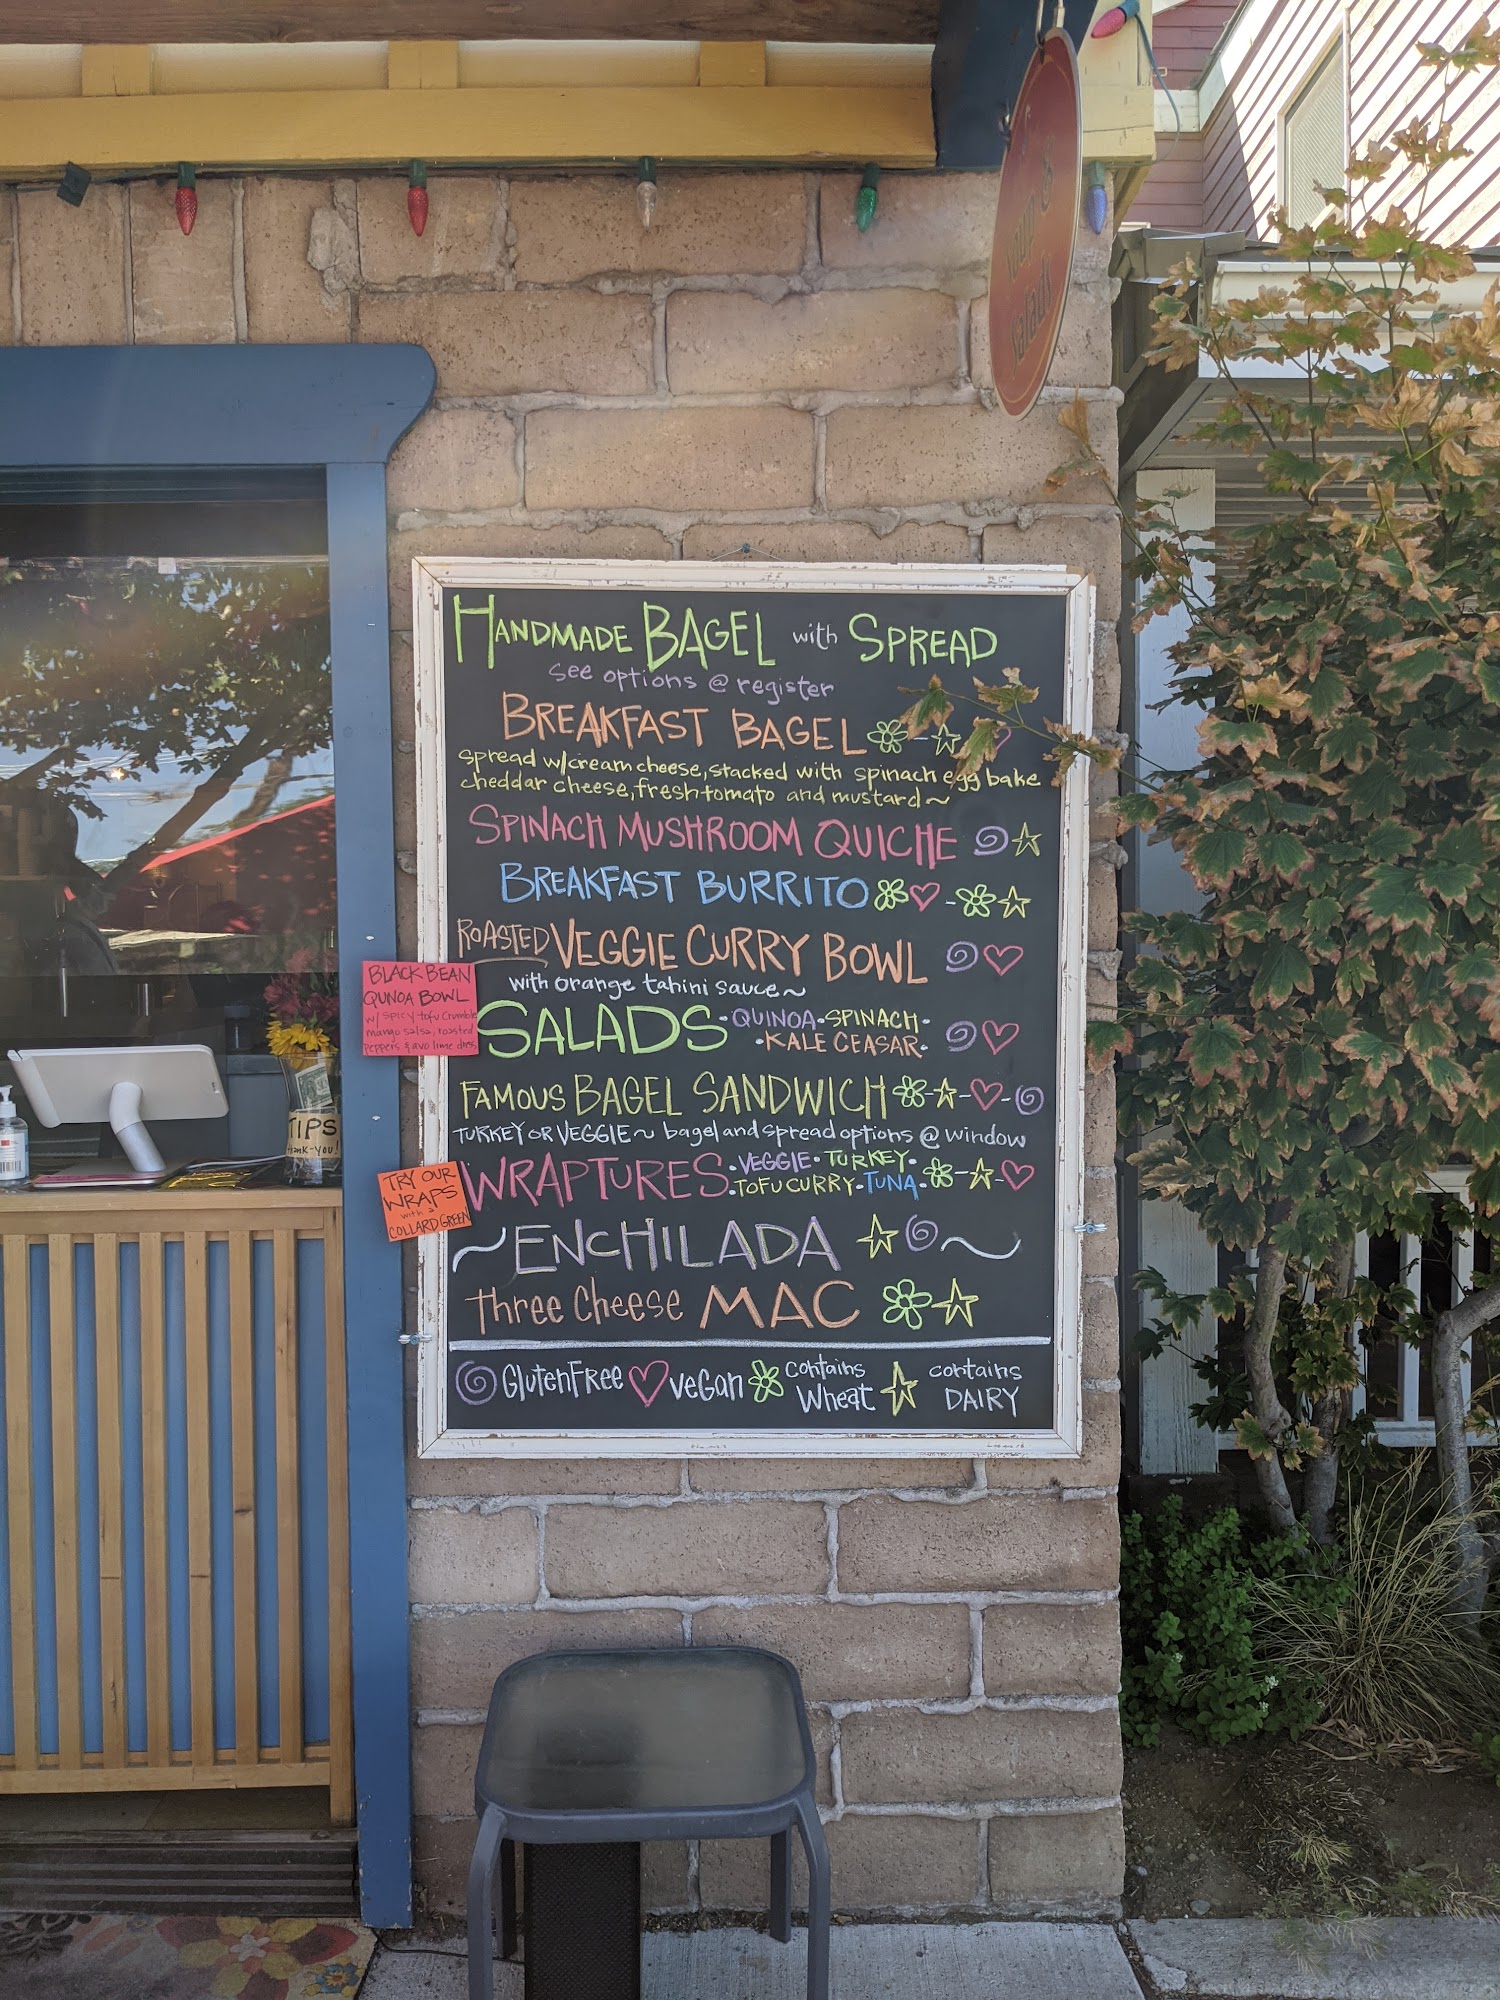 soup & salads
HANDMADE BAGEL with SPREAD
see options @ register
BREAKFAST BAGEL
spread w/cream cheese, stacked with spinach egg bake
cheddar cheese, fresh tomato and mustard~
SPINACH MUSHROOM QUICHE
BREAKFAST BURRITO
ROASTED VEGGIE CURRY BOWL
with orange tahini sauce~
BLACK BEAN
QUNOA BOWL
w/ spicy tofu crumble
mango salsa, roasted
peppers & avo lime dres
SALADS •QUINOA•SPINACH•
•KALE CEASAR•
FAMOUS BAGEL SANDWICH
TURKEY OR VEGGIE~ bagel and spread options @ window
WRAPTURES •VEGGIE•TURKEY•
•TOFU CURRY•TUNA•
TRY OUR
WRAPS
with a
COLLARD GREEN
~ENCHILADA
three cheese MAC
GlutenFree vegan contains Wheat contains DAIRY
TIPS
thank-you!